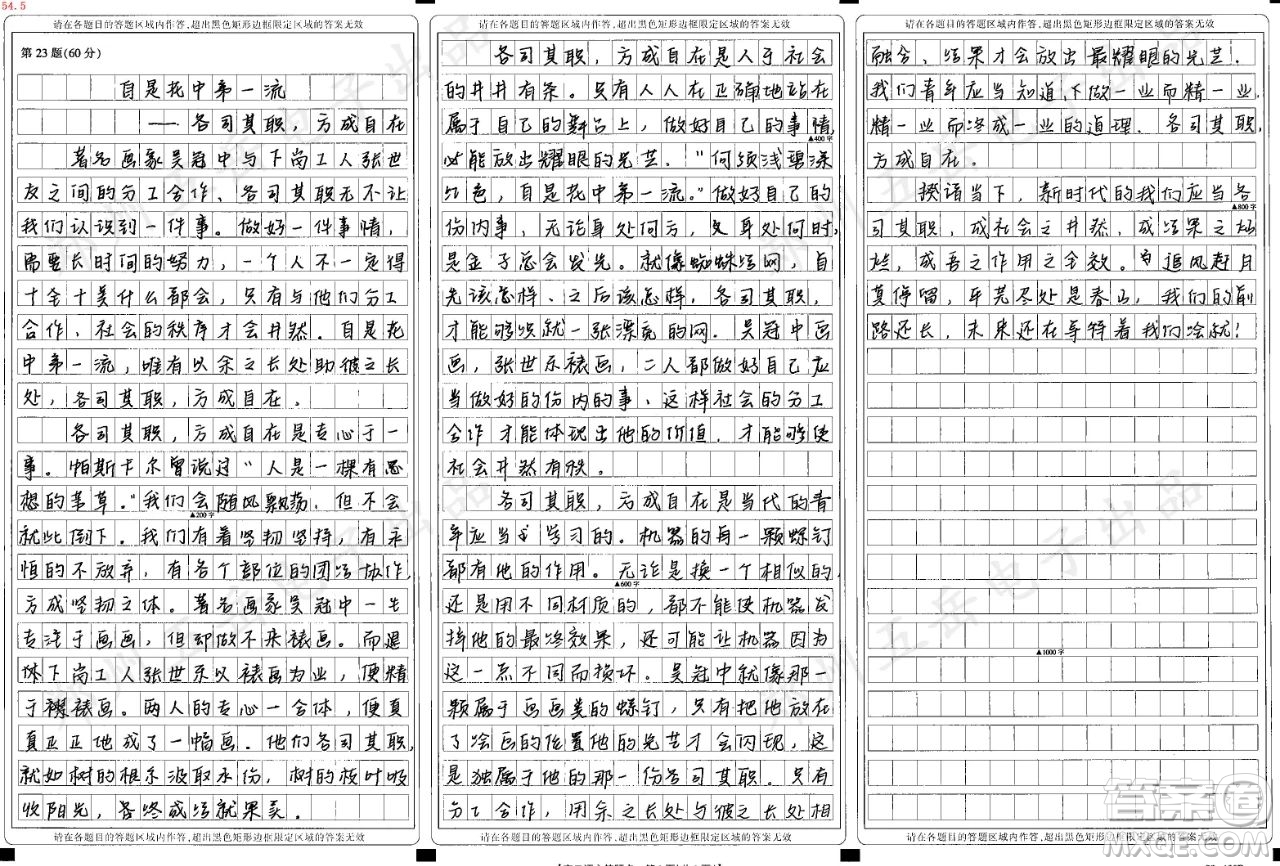 54.5
请在各题目的答题区域内作答,超出黑色矩形边框限定区域的答案无效
第23题(60分)
自是花中第一流
——各司其职,方成自在
著名画家吴冠中与下岗工人张世
友之间的分工合作、各司其职无不让
我们认识到一件事。做好一件事情,
需要长时间的努力,一个人不一定得
十全十美什么都会,只有与他们分工
合作、社会的秩序才会井然。自是花
中第一流,唯有以余之长处助彼之长
处,各司其职,方成自在。
各司其职,方成自在是专心于一
事。帕斯卡尔曾说过"人是一棵有思
想的苇草。"我们会随风飘荡,但不会
▲200字
就此倒下。我们有着坚韧坚持,有永
恒的不放弃,有各个部位的团结协作,
方成坚韧立体。著名画家吴冠中一生
专注于画画,但却做不来裱画。而退
休下岗工人张世东以裱画为业,便精
于裱画。两人的专心一合体,便真
真正正地成了一幅画。他们各司其职,
就如树的根系汲取水份,树的枝叶吸
收阳光,各终成结就果美。
请在各题目的答题区域内作答,超出黑色矩形边框限定区域的答案无效
请在各题目的答题区域内作答,超出黑色矩形边框限定区域的答案无效
各司其职,方成自在是人于社会
的井井有条。只有人人在正确地站在
属于自己的舞台上,做好自己的事情,
▲400字
必能放出耀眼的光芒。"何须浅碧深
红色,自是花中第一流。"做好自己的
份内事,无论身处何方,身处何时,
是金子总会发光。就像蜘蛛结网,自
先该怎样、之后该怎样,各司其职,
才能够织就一张漂亮的网。吴冠中画
画,张世东裱画,二人都做好自己应
当做好的份内的事、这样社会的分工
合作才能体现出他的价值.才能够使
社会井然有秩。
各司其职,方成自在是当代的青
年应当学习的。机器的每一颗螺钉
都有他的作用。无论是换一个相似的,
▲600字
还是用不同材质的,都不能使机器发
挥他的最终效果,还可能让机器因为
这一点不同而损坏。吴冠中就像那一
颗属于画画类的螺钉,只有把他放在
了绘画的位置他的光芒才会闪现,这
是独属于他的那一份各司其职。只有
分工合作,用余之长处与彼之长处相
请在各题目的答题区域内作答,超出黑色矩形边框限定区域的答案无效
请在各题目的答题区域内作答,超出黑色矩形边框限定区域的答案无效
融合、结果才会放出最耀眼的光芒.
我们青年应当知道下做一业而精一业,
精一业而终成一业的道理.各司其职,
方成自在.
揆诸当下,新时代的我们应当各
▲800字
司其职,成社会之井然,成结果之灿
烂,成吾之作用之全效。追风赶月
莫停留,平芜尽处是春山,我们的前
路还长,未来还在等待着我们绘就!
▲1000字
请在各题目的答题区域内作答,超出黑色矩形边框限定区域的答案无效
答案圈